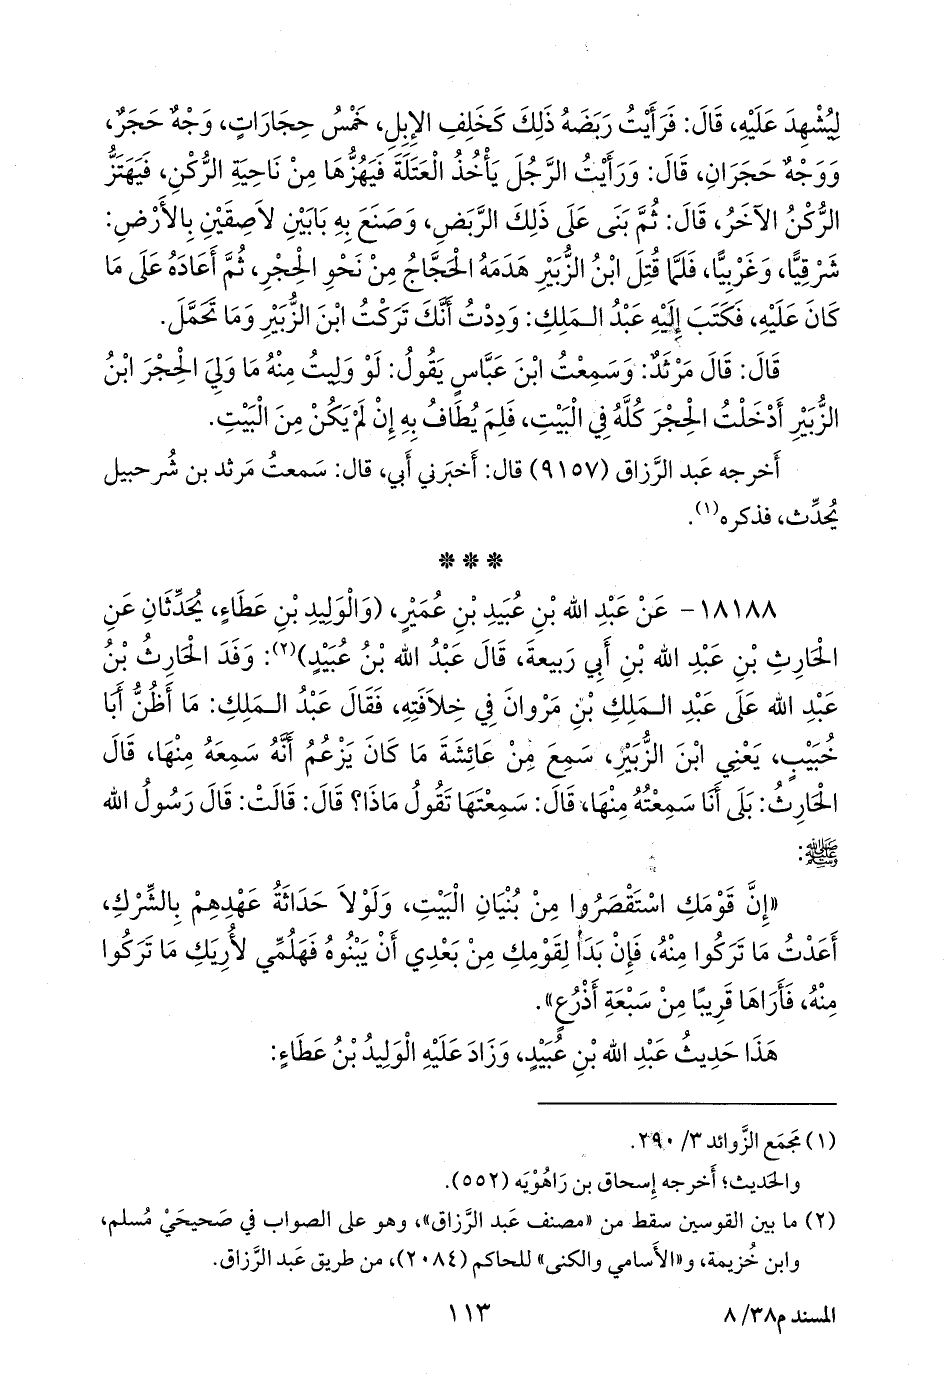 لِيُشْهِدَ عَلَيْهِ، قَالَ: فَرَأَيْتُ رَبَضَهُ ذَلِكَ كَخَلِفِ الإِبِلِ، خَمْسُ حِجَارَاتٍ، وَجْهٌ حَجَرٌ،
وَوَجْهٌ حَجَرَانِ، قَالَ: وَرَأَيْتُ الرَّجُلَ يَأْخُذُ الْعَتَلَةَ فَيَهُزُّهَا مِنْ نَاحِيَةِ الرُّكْنِ، فَيَهْتَزُّ
الرُّكْنُ الآخَرُ، قَالَ: ثُمَّ بَنَى عَلَى ذَلِكَ الرَّبَضِ، وَصَنَعَ بِهِ بَابَيْنِ لاَصِقَيْنِ بِالأَرْضِ:
شَرْقِيًّا، وَغَرْبِيًّا، فَلَمَّا قُتِلَ ابْنُ الزُّبَيْرِ هَدَمَهُ الْحَجَّاجُ مِنْ نَحْوِ الْحِجْرِ، ثُمَّ أَعَادَهُ عَلَى مَا
كَانَ عَلَيْهِ، فَكَتَبَ إِلَيْهِ عَبْدُ الـمَلِكِ: وَدِدْتُ أَنَّكَ تَرَكْتُ ابْنَ الزُّبَيْرِ وَمَا تَحَمَّلَ.
قَالَ: قَالَ مَرْثَدٌ: وَسَمِعْتُ ابْنَ عَبَّاسٍ يَقُولُ: لَوْ وَلِيتُ مِنْهُ مَا وَلِيَ الْحِجْرَ ابْنُ
الزُّبَيْرِ أَدْخَلْتُ الْحِجْرَ كُلَّهُ فِي الْبَيْتِ، فَلِمَ يُطَافُ بِهِ إِنْ لَمْ يَكُنْ مِنَ الْبَيْتِ.
أَخرجه عَبد الرَّزاق (٩١٥٧) قال: أَخبَرني أَبي، قال: سَمعتُ مَرثد بن شُرحبيل
يُحدِّث، فذكره(١).
***
١٨١٨٨- عَنْ عَبْدِ الله بْنِ عُبَيدِ بْنِ عُمَيْرٍ، (وَالْوَلِيدِ بْنِ عَطَاءٍ، يُحَدِّثَانِ عَنِ
الْحَارِثِ بْنِ عَبْدِ الله بْنِ أَبِي رَبِيعَةَ، قَالَ عَبْدُ الله بْنُ عُبَيْدٍ)(٢): وَفَدَ الْحَارِثُ بْنُ
عَبْدِ الله عَلَى عَبْدِ الـمَلِكِ بْنِ مَرْوَانَ فِي خِلاَفَتِهِ، فَقَالَ عَبْدُ الـمَلِكِ: مَا أَظُنُّ أَبَا
خُبَيْبٍ، يَعْنِي ابْنَ الزُّبَيْرِ، سَمِعَ مِنْ عَائِشَةَ مَا كَانَ يَزْعُمُ أَنَّهُ سَمِعَهُ مِنْهَا، قَالَ
الْحَارِثُ: بَلَى أَنَا سَمِعْتُهُ مِنْهَا، قَالَ: سَمِعْتَهَا تَقُولُ مَاذَا؟ قَالَ: قَالَتْ: قَالَ رَسُولُ الله
ﷺ:
«إِنَّ قَوْمَكِ اسْتَقْصَرُوا مِنْ بُنْيَانِ الْبَيْتِ، وَلَوْلاَ حَدَاثَةُ عَهْدِهِمْ بِالشِّرْكِ،
أَعَدْتُ مَا تَرَكُوا مِنْهُ، فَإِنْ بَدَأَ لِقَوْمِكِ مِنْ بَعْدِي أَنْ يَبْنُوهُ فَهَلُمِّي لأُرِيَكِ مَا تَرَكُوا
مِنْهُ، فَأَرَاهَا قَرِيبًا مِنْ سَبْعَةِ أَذْرُعٍ».
هَذَا حَدِيثُ عَبْدِ الله بْنِ عُبَيْدٍ، وَزَادَ عَلَيْهِ الْوَلِيدُ بْنُ عَطَاءٍ:
(١) مَجمَع الزَّوائد ٣/ ٢٩٠.
والحَديث؛ أَخرجه إِسحاق بن رَاهُوْيَه (٥٥٢).
(٢) ما بين القوسين سقط من «مصنف عَبد الرَّزاق»، وهو على الصواب في صَحيحَيْ مُسلم،
وابن خُزيمة، و«الأَسامي والكنى» للحاكم (٢٠٨٤)، من طريق عَبد الرَّزاق.
المسند م٣٨/ ٨
١١٣